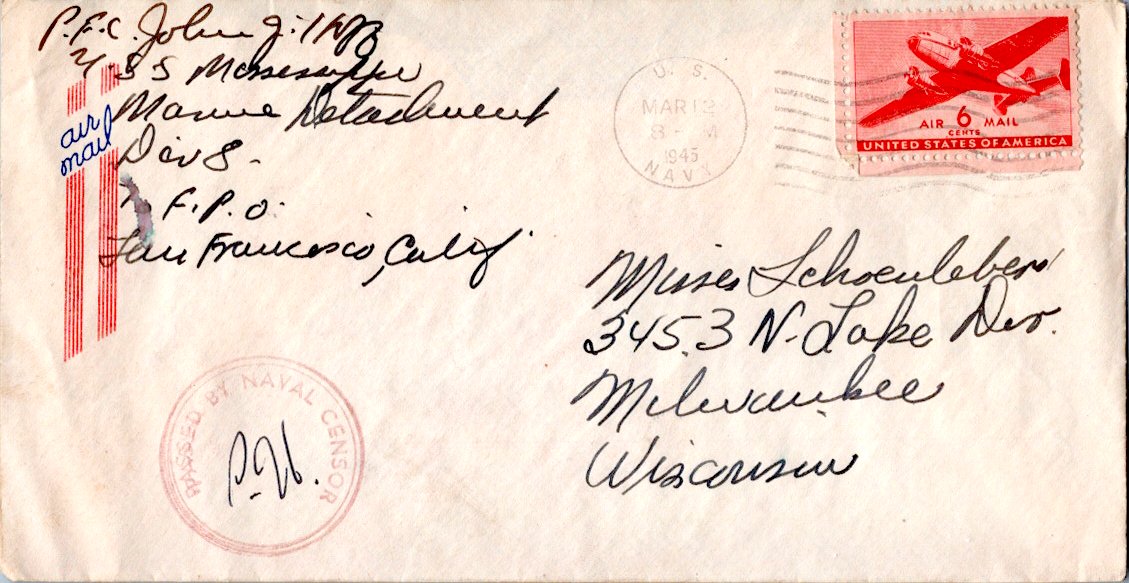 P.F.C. John J.
U.S.S Mississippi
Marine Detachment
Div 8.
% F.P.O.
San Francisco, Calif
air
mail
U. S.
MAR 12
8 - M
1945
NAVY
AIR 6 MAIL
CENTS
UNITED STATES OF AMERICA
Misses Schoenleber
3453 N. Lake Dr.
Milwaukee
Wisconsin
PASSED BY NAVAL CENSOR